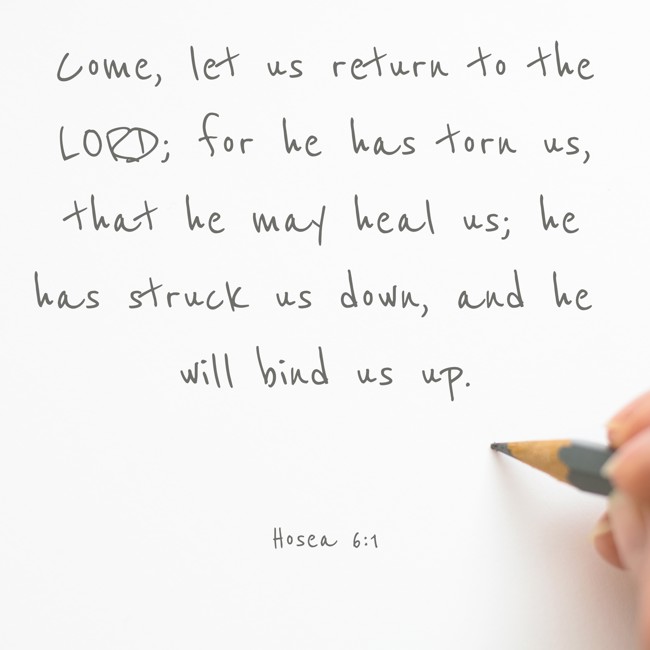 Come, let us return to the
LORD; for he has torn us,
that he may heal us; he
has struck us down, and he
will bind us up.
Hosea 6:1